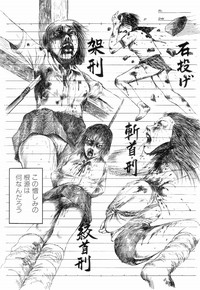 石投げ
架刑
斬首刑
絞首刑
この憎しみの
根源は
何なんだろう